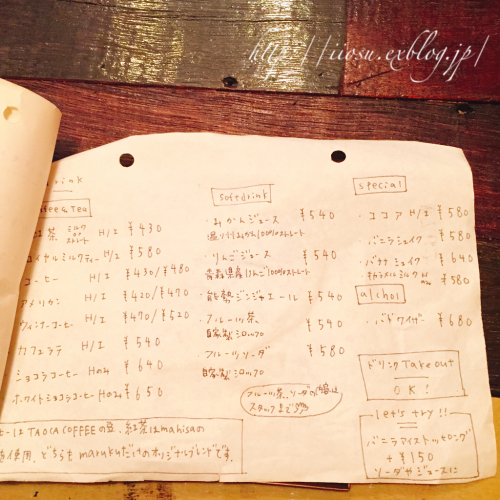 http://iiosu.exblog.jp/
drink
Coffee & Tea
紅茶 ミルク or ストレート H/I ¥430
ロイヤルミルクティー H/I ¥580
コーヒー H/I ¥430/¥480
アメリカン H/I ¥420/¥470
ウィンナーコーヒー H/I ¥470/¥520
カフェラテ H/I ¥540
ショコラコーヒー Hのみ ¥640
ホワイトショコラコーヒー Hのみ ¥650
コーヒーは TAOCA COFFEEの豆、紅茶はmahisaの
使用、どちらも marukuだけのオリジナルブレンドです。
softdrink
・みかんジュース ¥540
みかん100%ストレート
・りんごジュース ¥540
青森県産りんご100%ストレート
・能勢ジンジャエール ¥540
・フルーツ茶 ¥540
自家製シロップ
・フルーツソーダ ¥580
自家製シロップ
フルーツ茶、ソーダの
スタッフまで
special
・ココア H/I ¥580
・バニラシェイク ¥580
・バナナシェイク ¥640
・キャラメルミルク ¥580
alchol
・バドワイザー ¥680
ドリンク Take out
OK!
let's try!!
バニラアイストッピング
+ ¥150
ソーダやジュースに